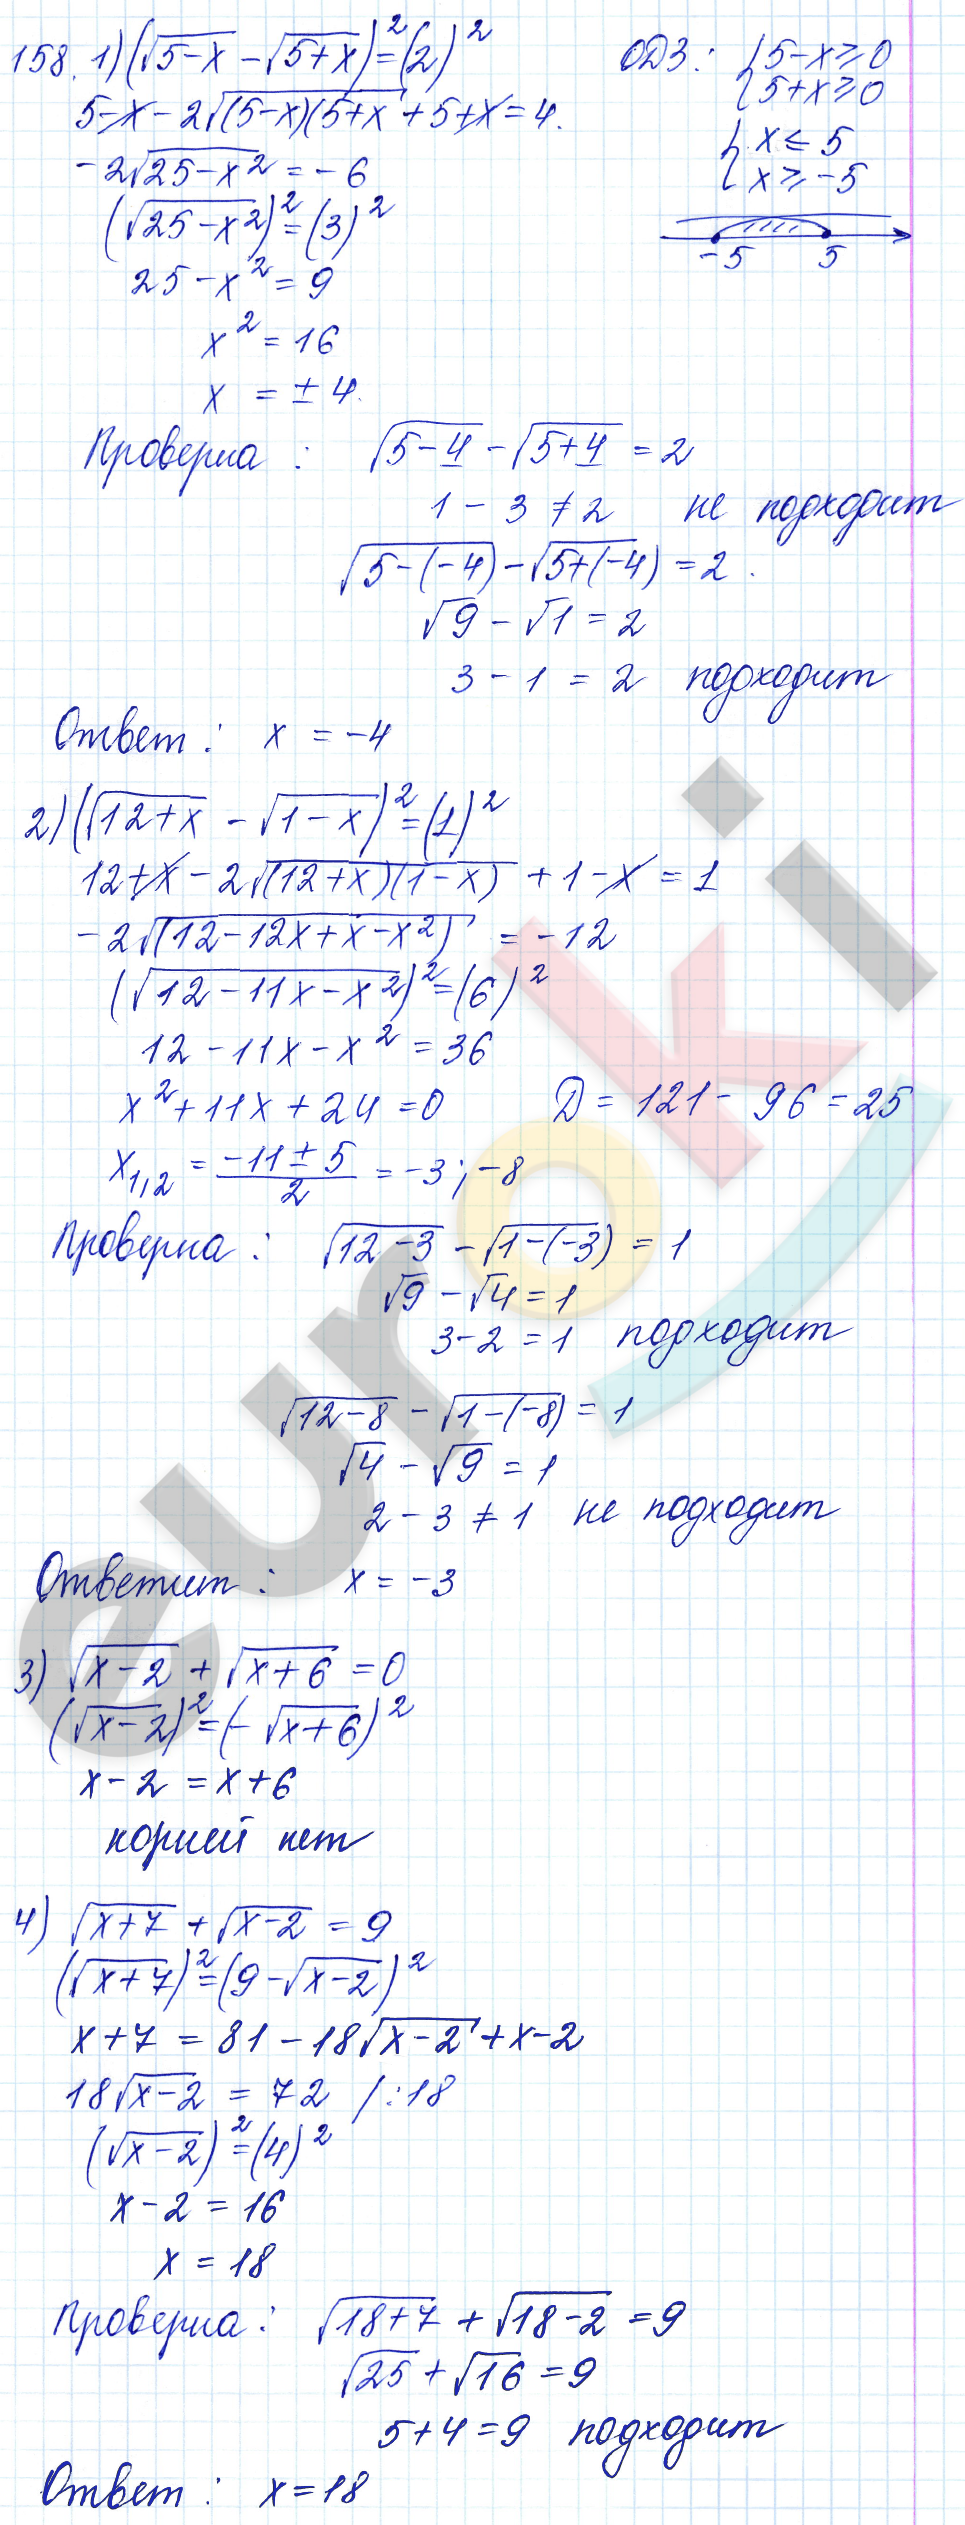 158. 1) (√5-x - √5+x)² = (2)²
ОДЗ: { 5-x ≥ 0
{ 5+x ≥ 0
5-x - 2√(5-x)(5+x + 5+x = 4.
{ x ≤ 5
{ x ≥ -5
-2√25-x² = -6
(√25-x²)² = (3)²
-5 5
25-x² = 9
x² = 16
x = ± 4.
Проверка : √5-4 - √5+4 = 2
1 - 3 ≠ 2 не подходит
√5-(-4) - √5+(-4) = 2.
√9 - √1 = 2
3 - 1 = 2 подходит
Ответ: x = -4
2) (√12+x - √1-x)² = (1)²
12+x - 2√(12+x)(1-x) + 1-x = 1
-2√(12-12x+x-x²) = -12
(√12-11x-x²)² = (6)²
12-11x-x² = 36
x²+11x+24 = 0 D = 121 - 96 = 25
x1,2 = -11±5 / 2 = -3; -8
Проверка: √12-3 - √1-(-3) = 1
√9 - √4 = 1
3-2 = 1 подходит
√12-8 - √1-(-8) = 1
√4 - √9 = 1
2 - 3 ≠ 1 не подходит
Ответит: x = -3
3) √x-2 + √x+6 = 0
(√x-2)² = (-√x+6)²
x-2 = x+6
корней нет
4) √x+7 + √x-2 = 9
(√x+7)² = (9-√x-2)²
x+7 = 81-18√x-2 + x-2
18√x-2 = 72 /:18
(√x-2)² = (4)²
x-2 = 16
x = 18
Проверка: √18+7 + √18-2 = 9
√25 + √16 = 9
5+4 = 9 подходит
Ответ: x = 18
euroki